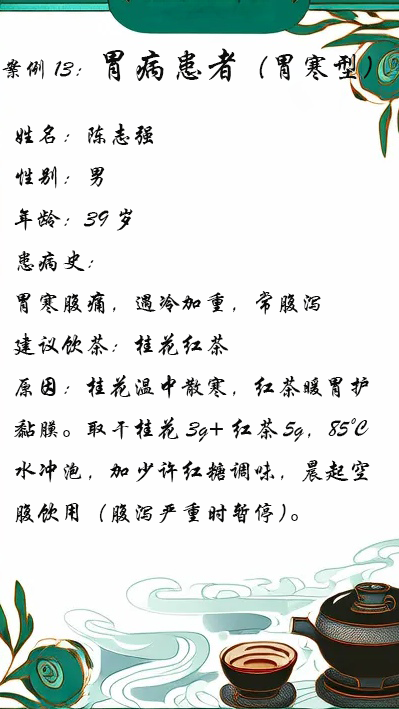 案例13：胃病患者（胃寒型）
姓名：陈志强
性别：男
年龄：39岁
患病史：
胃寒腹痛，遇冷加重，常腹泻
建议饮茶：桂花红茶
原因：桂花温中散寒，红茶暖胃护
黏膜。取干桂花3g+红茶5g，85℃
水冲泡，加少许红糖调味，晨起空
腹饮用（腹泻严重时暂停）。